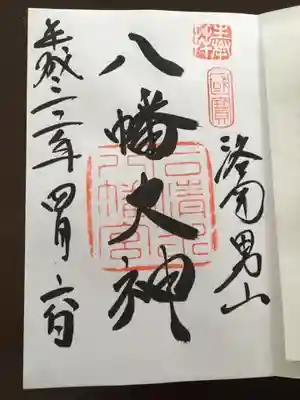 奉拝
國寳
洛南男山
八幡大神
石清水八幡宮
平成三一年四月六日